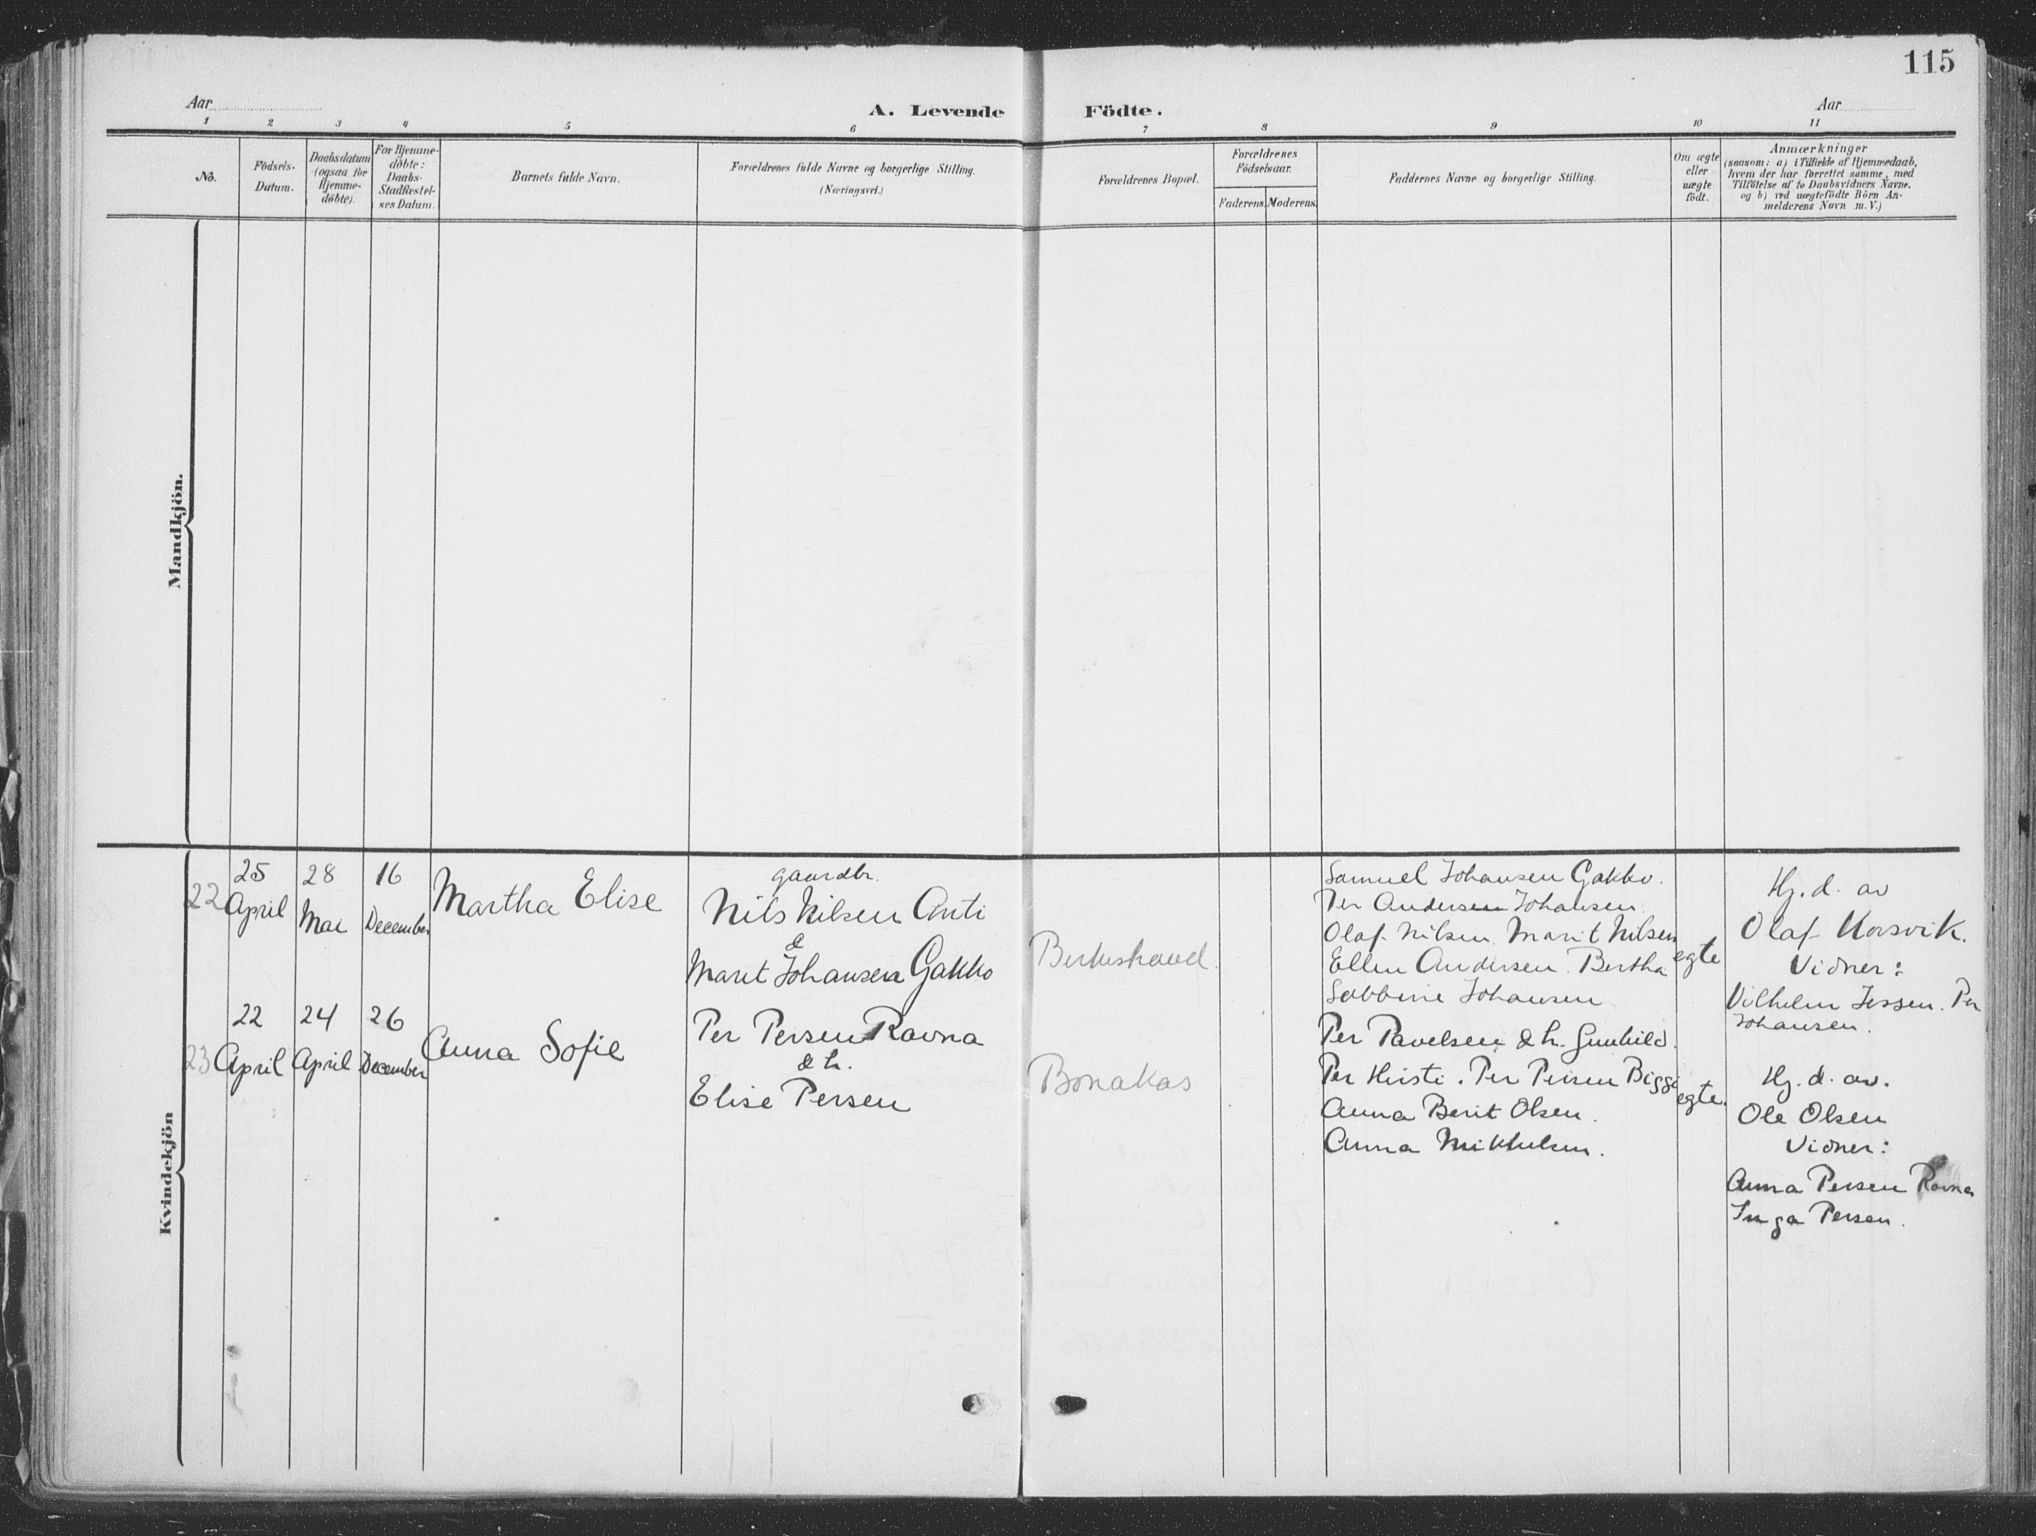 115
Aar
A. Levende Födte.
Aar
1 2 3 4 5 6 7 8 9 10 11
No.
Födsels-
Datum.
Daabsdatum
(ogsaa for
Hjemme-
döbte).
For Hjemme-
döbte:
Daabs-
Stadfæstel-
ses Datum.
Barnets fulde Navn.
Forældrenes fulde Navne og borgerlige Stilling.
(Næringsvei.)
Forældrenes Bopæl.
Forældrenes
Födselsaar.
Faderens. Moderens.
Faddernes Navne og borgerlige Stilling.
Om ægte
eller
uægte
födt.
Anmærkninger
(saasom: a) i Tilfælde af Hjemmedaab,
hvem der har forrettet samme, med
Tilföielse af to Daabsvidners Navne.
og b) ved uægtefödte Börn An-
melderens Navn m. V.)
Mandkjön.
Kvindekjön
22
25
April
28
Mai
16
December
Martha Elise
gaardbr.
Nils Nilsen Anti
&
Marit Johansen Gakko
Birkestrand.
Samuel Johansen Gakko.
Per Andersen Johansen
Olaf Nilsen. Marit Nilsen
Ellen Andersen. Bertha
Sabbine Johansen
egte
Hj. d. av
Olaf Korsvik.
Vidner:
Vilhelm Jessen. Per
Johansen.
23
22
April
24
April
26
December
Anna Sofie
Per Persen Ravna
& h.
Elise Persen
Bonakas
Per Pavelsen & h. Gunhild.
Per Hirsti. Per Persen Biggi
Anna Berit Olsen.
Anna Mikkelsen.
egte.
Hj. d. av.
Ole Olsen
Vidner:
Anna Persen Ravna
Inga Persen.